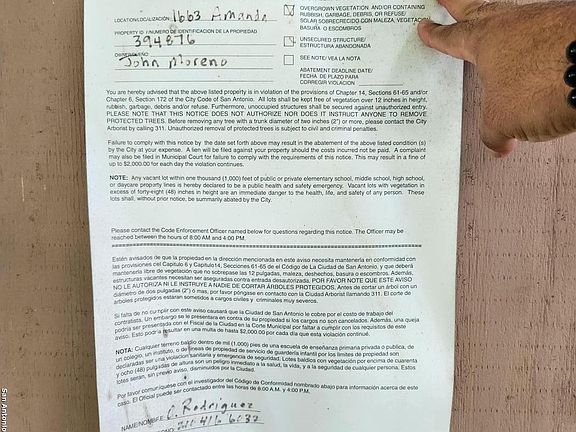 OVERGROWN VEGETATION AND/OR CONTAINING
RUBBISH, GARBAGE, DEBRIS, OR REFUSE/
SOLAR SOBRECRECIDO CON MALEZA, VEGETACI
BASURA O ESCOMBROS
LOCATION/LOCALIZACIÓN: 1663 Amanda
PROPERTY ID / NÚMERO DE IDENTIFICACIÓN DE LA PROPIEDAD
394876
UNSECURED STRUCTURE/
ESTRUCTURA ABANDONADA
John Moreno
SEE NOTE/ VEA LA NOTA
ABATEMENT DEADLINE DATE/
FECHA DE PLAZO PARA
CORREGIR VIOLACION
You are hereby advised that the above listed property is in violation of the provisions of Chapter 14, Sections 61-65 and/or
Chapter 6, Section 172 of the City Code of San Antonio. All lots shall be kept free of vegetation over 12 inches in height,
rubbish, garbage, debris and/or refuse. Furthermore, unoccupied structures shall be secured against unauthorized entry.
PLEASE NOTE THAT THIS NOTICE DOES NOT AUTHORIZE NOR DOES IT INSTRUCT ANYONE TO REMOVE
PROTECTED TREES. Before removing any tree with a trunk diameter of two inches (2") or more, please contact the City
Arborist by calling 311. Unauthorized removal of protected trees is subject to civil and criminal penalties.
Failure to comply with this notice by the date set forth above may result in the abatement of the above listed condition (s)
by the City at your expense. A lien will be filed against your property should the costs incurred not be paid. A complaint
may also be filed in Municipal Court for failure to comply with the requirements of this notice. This may result in a fine of
up to $2,000.00 for each day the violation continues.
NOTE: Any vacant lot within one thousand (1,000) feet of public or private elementary school, middle school, high school,
or daycare property lines is hereby declared to be a public health and safety emergency. Vacant lots with vegetation in
excess of forty-eight (48) inches in height are an immediate danger to the health, life, and safety of any person. These
lots shall, without prior notice, be summarily abated by the City.
Please contact the Code Enforcement Officer named below for questions regarding this notice. The Officer may be
reached between the hours of 8:00 AM and 4:00 PM.
Estén avisados de que la propiedad en la dirección mencionada en este aviso necesita mantenerla en conformidad con
las provisiones del Capitulo 6 y Capitulo14, Secciones 61-65 del Código de La Ciudad de San Antonio, y que deberá
mantenerla libre de vegetación que no sobrepase las 12 pulgadas, maleza, deshechos, basura o escombros. Además,
estructuras vacantes necesitan ser aseguradas contra entrada desautorizada. POR FAVOR NOTE QUE ESTE AVISO
NO LE AUTORIZA NI LE INSTRUYE A NADIE DE CORTAR ÁRBOLES PROTEGIDOS. Antes de cortar un árbol con un
diámetro de dos pulgadas (2") ó mas, por favor póngase en contacto con la Ciudad Arborist llamando 311. El corte de
árboles protegidos estarán sometidos a cargos civiles y criminales muy severos.
Si falta de no cumplir con este aviso causará que la Ciudad de San Antonio le cobre por el costo de trabajo del
contratista. Un embargo se le presentara en contra de su propiedad si los cargos no son cancelados. Además, una queja
podría ser presentada con el Fiscal de la Ciudad en la Corte Municipal por faltar a cumplir con los requisitos de este
aviso. Esto podría resultar en una multa de hasta $2,000.00 por cada día que esta violación continué.
NOTA: Cualquier terreno baldío dentro de mil (1,000) pies de una escuela de enseñanza primaria privada o publica, de
un colegio, un instituto, o de lineas de propiedad de servicio de guardería infantil por los limites de propiedad son
declaradas ser una violación sanitaria y emergencia de seguridad. Lotes baldíos con vegetación por encima de cuarenta
y ocho (48) pulgadas de altura son un peligro inmediato a la salud, la vida, y a la seguridad de cualquier persona. Estos
lotes serán, sin previo aviso, disminuidos por la Ciudad.
Por favor comuníquese con el investigador del Código de Conformidad nombrado abajo para información acerca de este
caso. El Oficial puede ser contactado entre las horas de 8:00 A.M. y 4:00 P.M.
NAME/NOMBRE: C. Rodriguez
210 416 6037
San Antonio